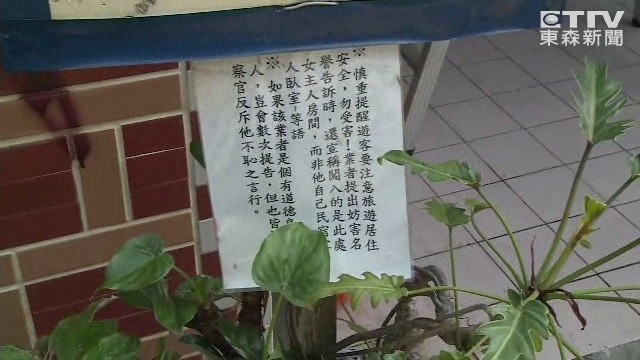 ETTV
東森新聞
※慎重提醒遊客要注意旅遊居住
安全，勿受害！業者提出妨害名
譽告訴時，還宣稱闖入的是此處
女主人房間，而非他自己民宿
人臥室…等語
※如果該業者是個有道德
人，豈會數次提告，但也皆
察官反斥他不恥之言行。